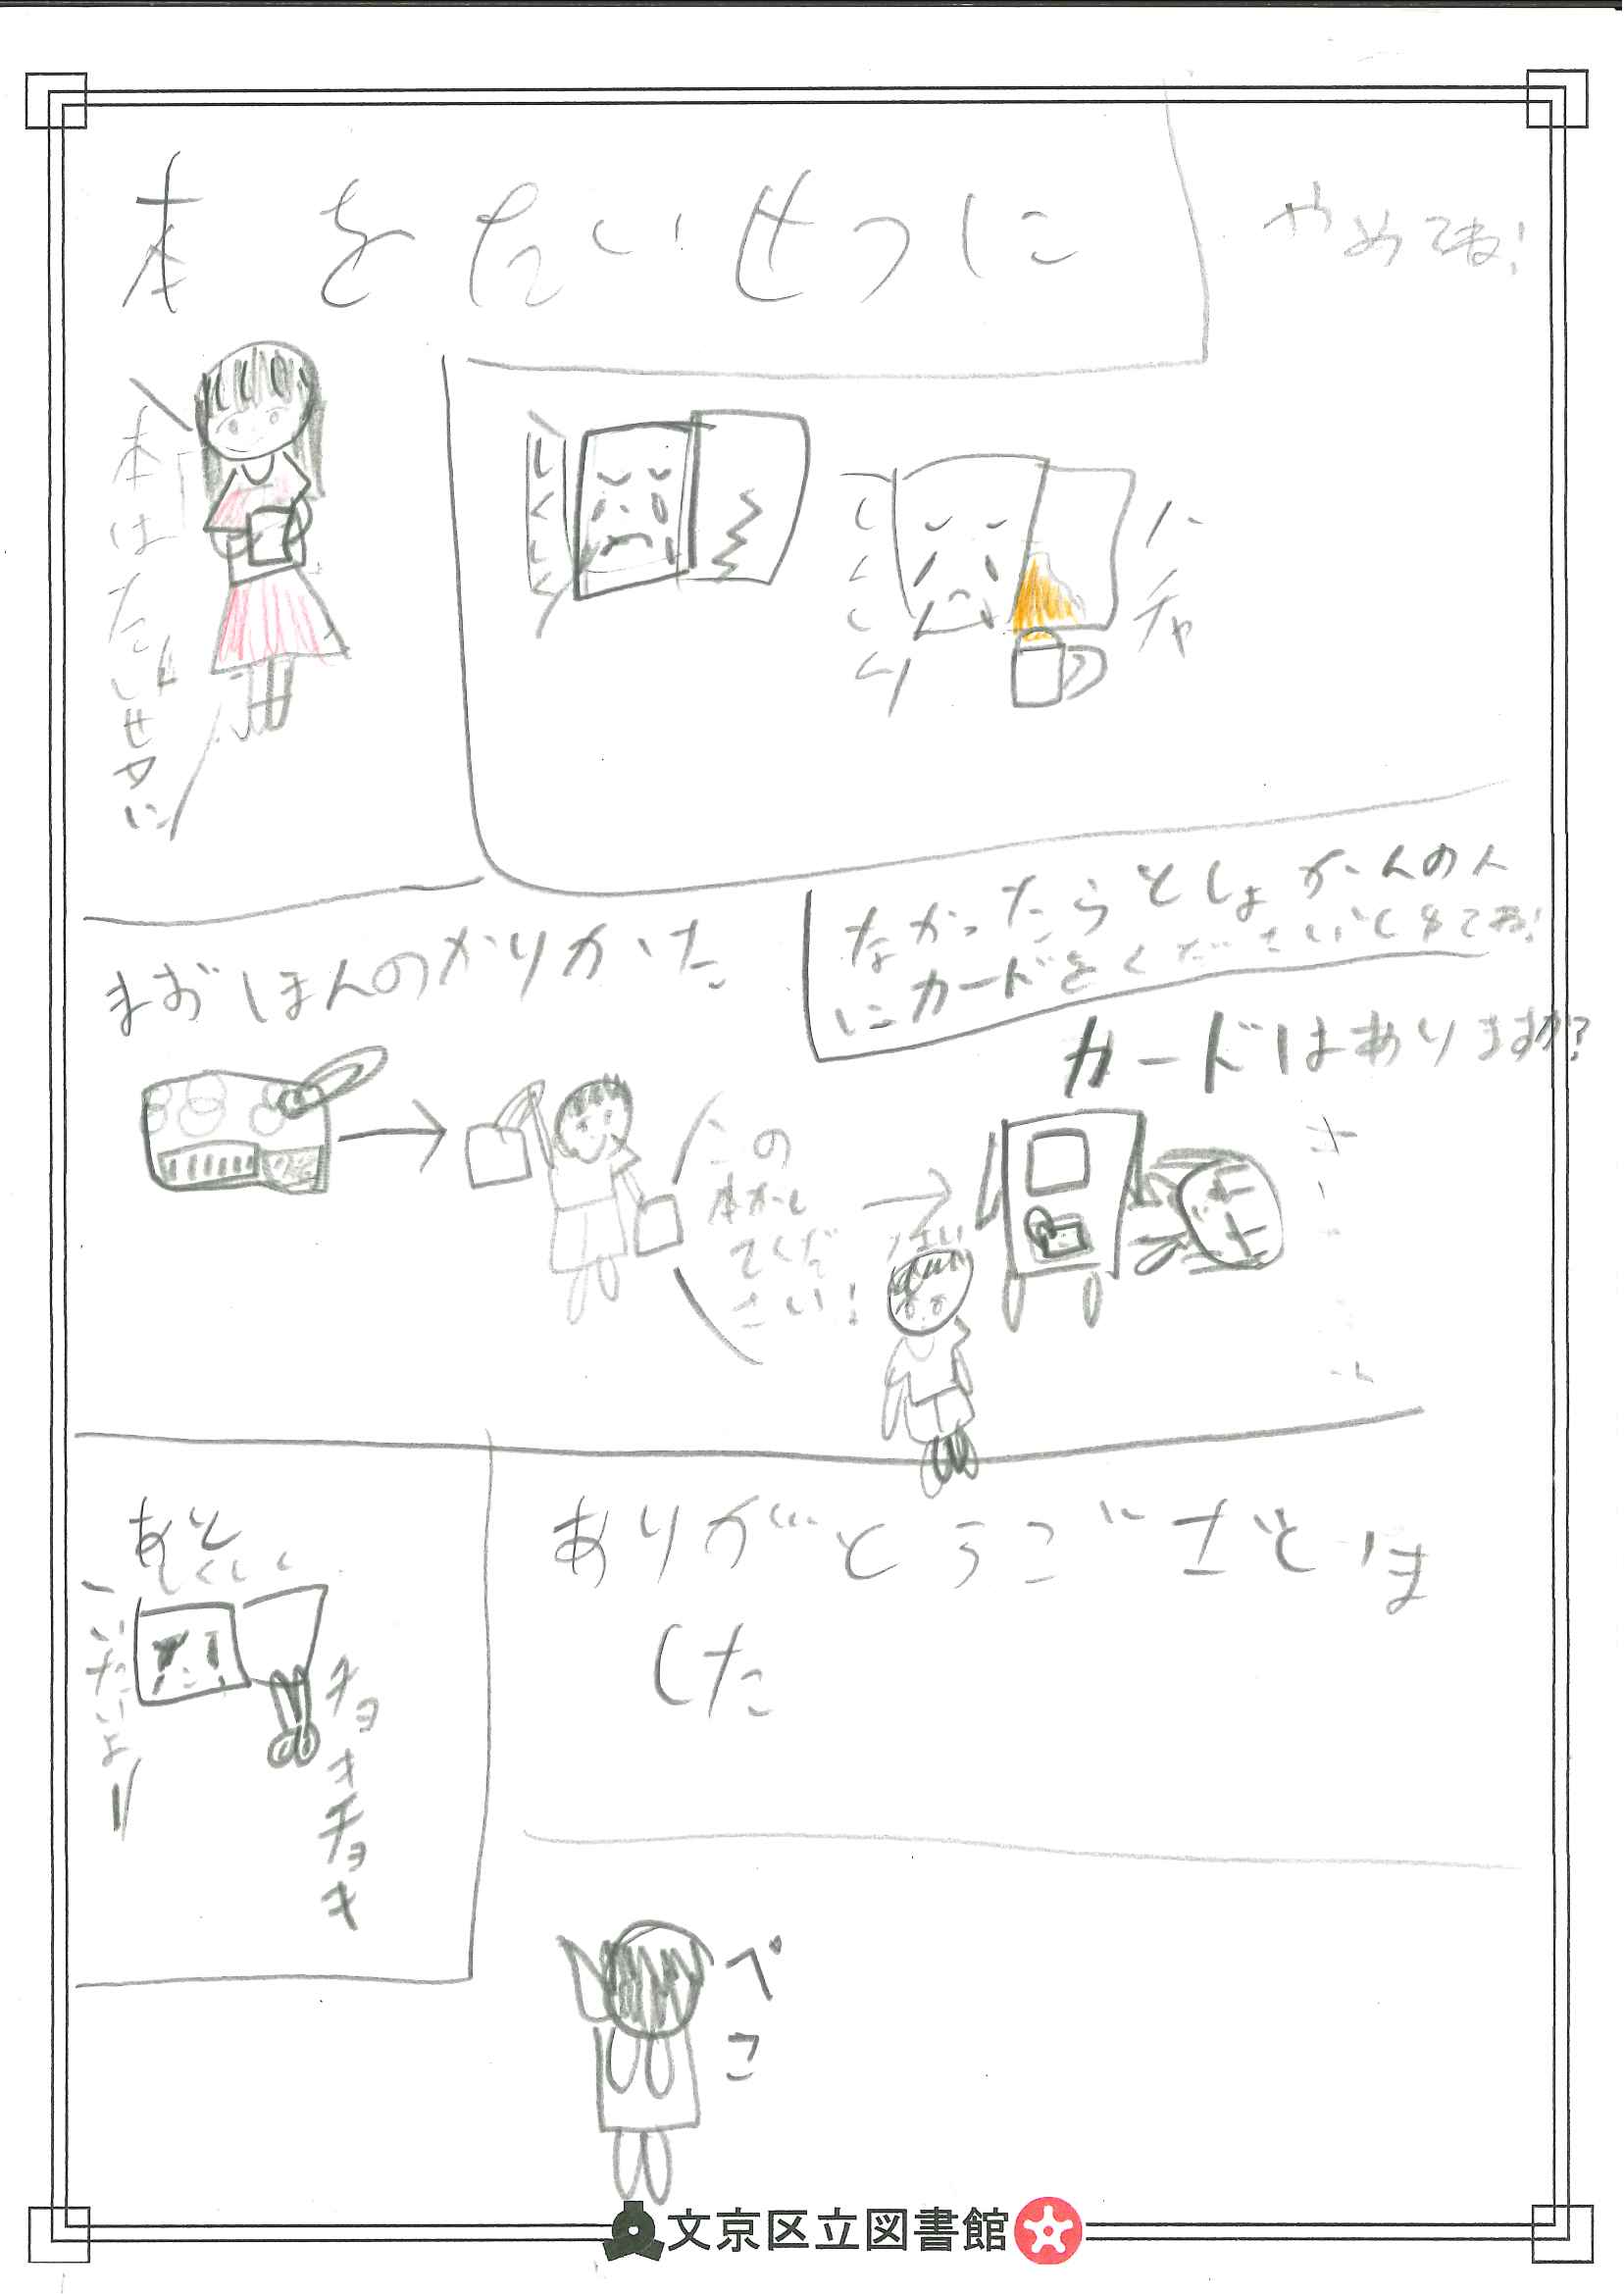 本をたいせつに
やめてね!
本はたいせつに
しくしく
しくしく
バチャ
まずほんのかりかた
なかったらとしょかんの人
にカードをくださいしてね!
カードはありますか?
この
本かし
てくだ
さい!
はい
あと
しくしく
いたいよー
チョキチョキ
ありがとうございま
した
ぺこ
文京区立図書館